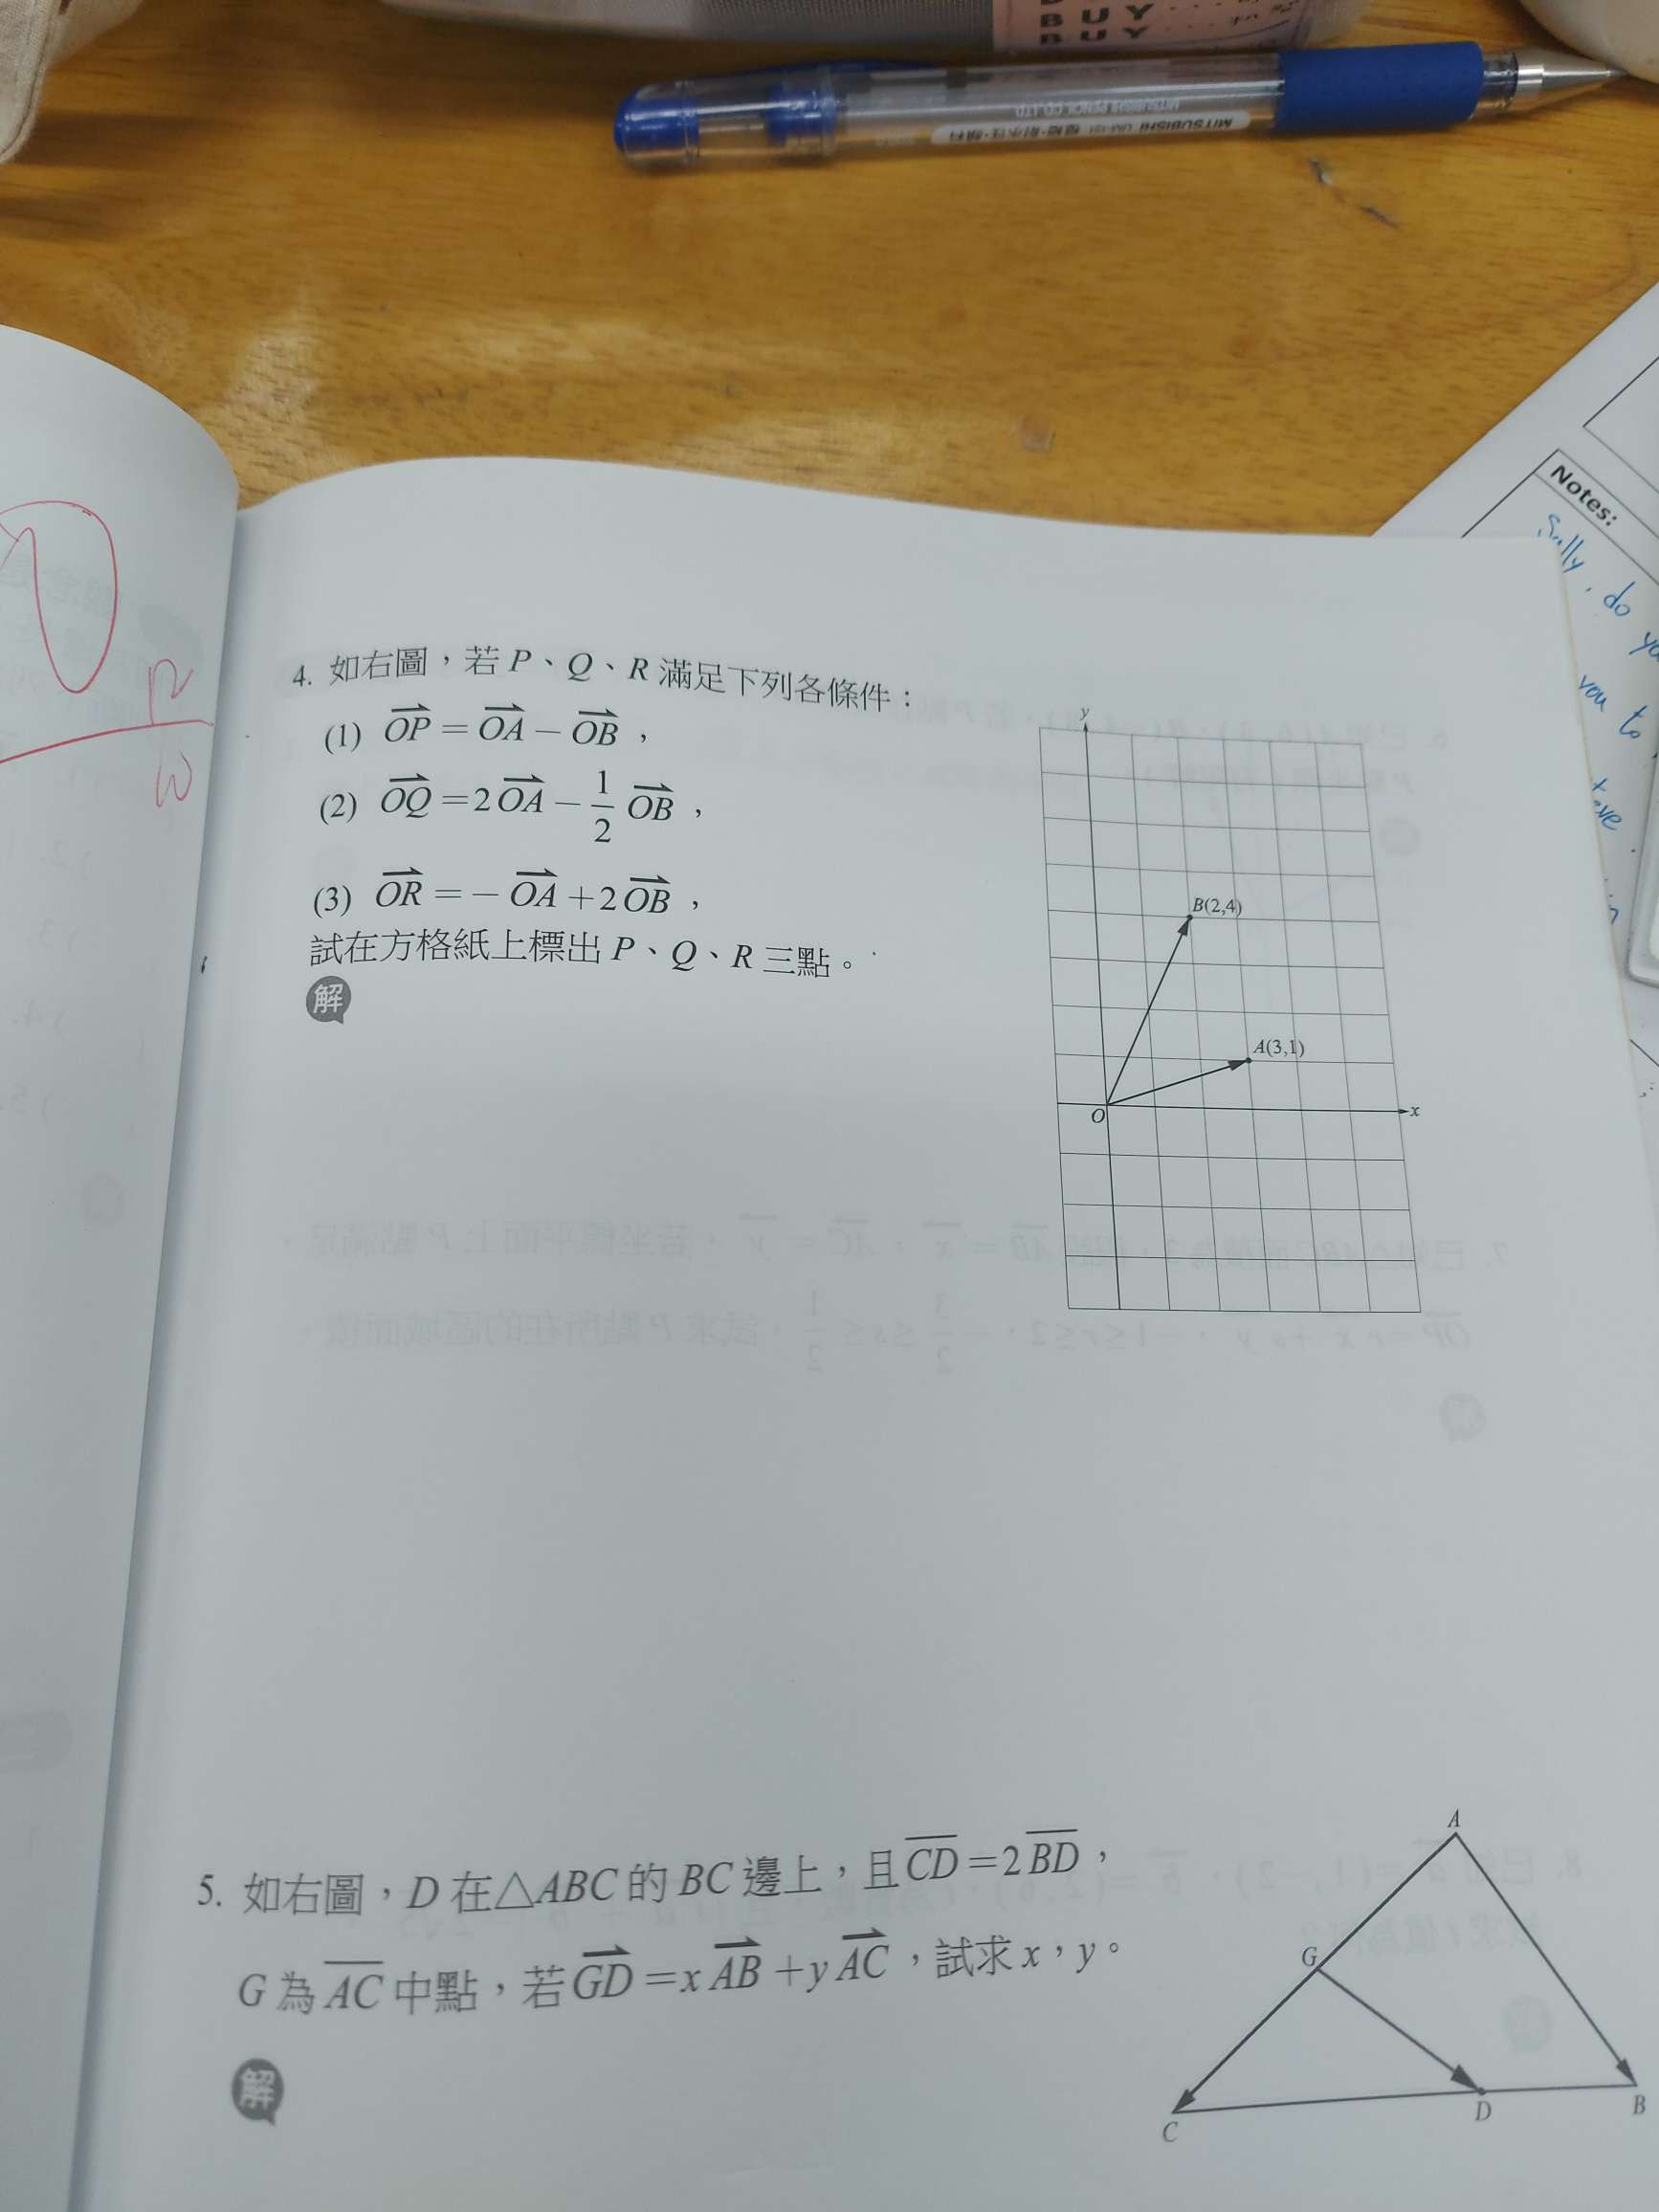 BUY
BUY
MITSUBISHI PENCIL CO., LTD.
MITSUBISHI UM-151 極細・耐水性・顏料
Notes:
Sully, do
you to
4. 如右圖，若 P、Q、R 滿足下列各條件：
(1) $\overrightarrow{OP}=\overrightarrow{OA}-\overrightarrow{OB}$，
(2) $\overrightarrow{OQ}=2\overrightarrow{OA}-\frac{1}{2}\overrightarrow{OB}$，
(3) $\overrightarrow{OR}=-\overrightarrow{OA}+2\overrightarrow{OB}$，
試在方格紙上標出 P、Q、R 三點。
解
y
B(2,4)
A(3,1)
O
x
5. 如右圖，D 在△ABC 的 BC 邊上，且 $\overline{CD}=2\overline{BD}$，
G 為 $\overline{AC}$ 中點，若 $\overrightarrow{GD}=x\overrightarrow{AB}+y\overrightarrow{AC}$，試求 x，y。
解
A
G
C
D
B